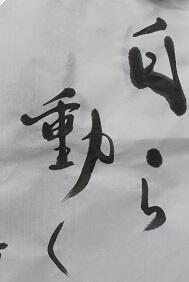 自ら
動く